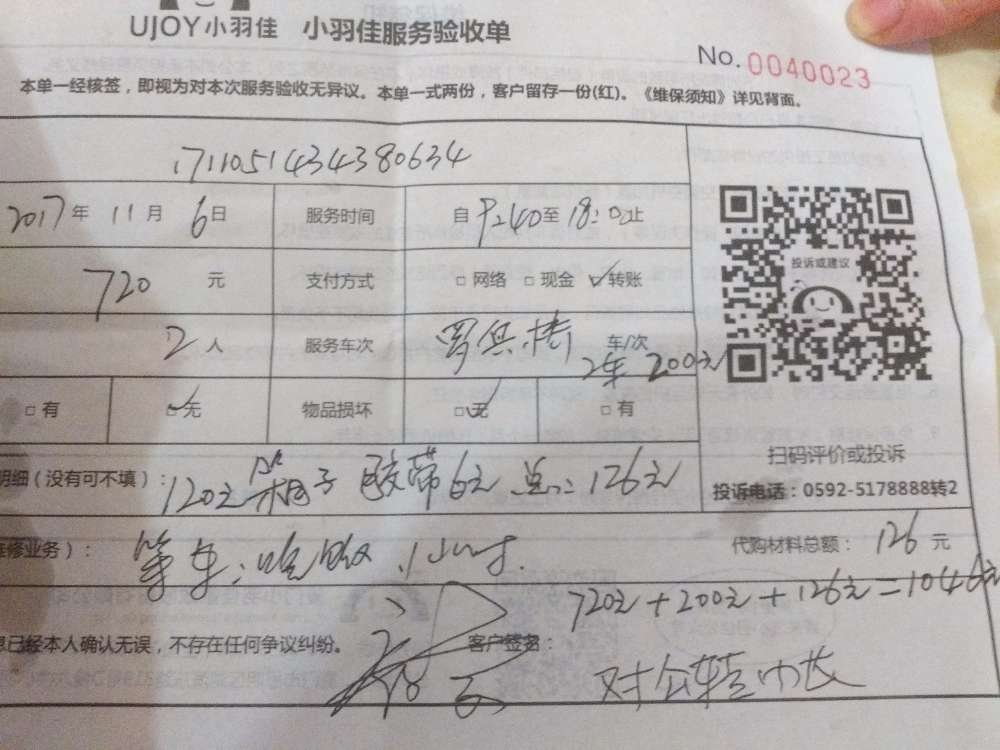 UJOY小羽佳 小羽佳服务验收单
No. 0040023
本单一经核签，即视为对本次服务验收无异议。本单一式两份，客户留存一份(红)。《维保须知》详见背面。
171105143438 0634
2017年 11月 6日 服务时间 自 9:40至 18:0止
720 元 支付方式 □ 网络 □ 现金 ☑ 转账
2 人 服务车次 车/次
2车 200元
□ 有 ☑ 无 物品损坏 ☑ 无 □ 有
投诉或建议
扫码评价或投诉
投诉电话：0592-5178888转2
明细（没有可不填）： 120元 箱子 胶带6元 总：126元
维修业务）： 等车，吃饭，1小时.
代购材料总额： 126 元
720元+200元+126元=1046元
息已经本人确认无误，不存在任何争议纠纷。 客户签名：
对公转